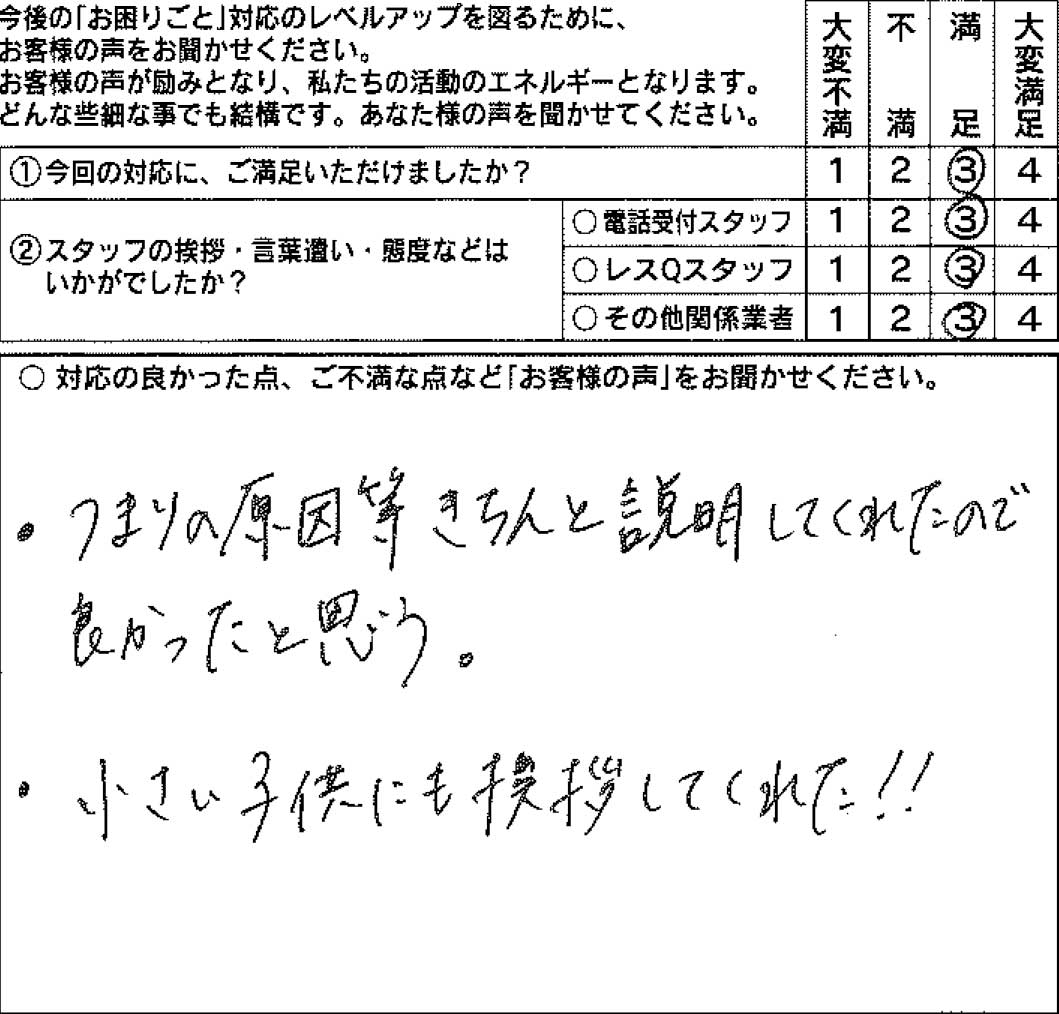 今後の「お困りごと」対応のレベルアップを図るために、
お客様の声をお聞かせください。
お客様の声が励みとなり、私たちの活動のエネルギーとなります。
どんな些細な事でも結構です。あなた様の声を聞かせてください。
大変不満 不満 満足 大変満足
①今回の対応に、ご満足いただけましたか? 1 2 3 4
②スタッフの挨拶・言葉遣い・態度などは
いかがでしたか?
○電話受付スタッフ 1 2 3 4
○レスQスタッフ 1 2 3 4
○その他関係業者 1 2 3 4
○ 対応の良かった点、ご不満な点など「お客様の声」をお聞かせください。
・つまりの原因等きちんと説明してくれたので
良かったと思う。
・小さい子供にも挨拶してくれた!!